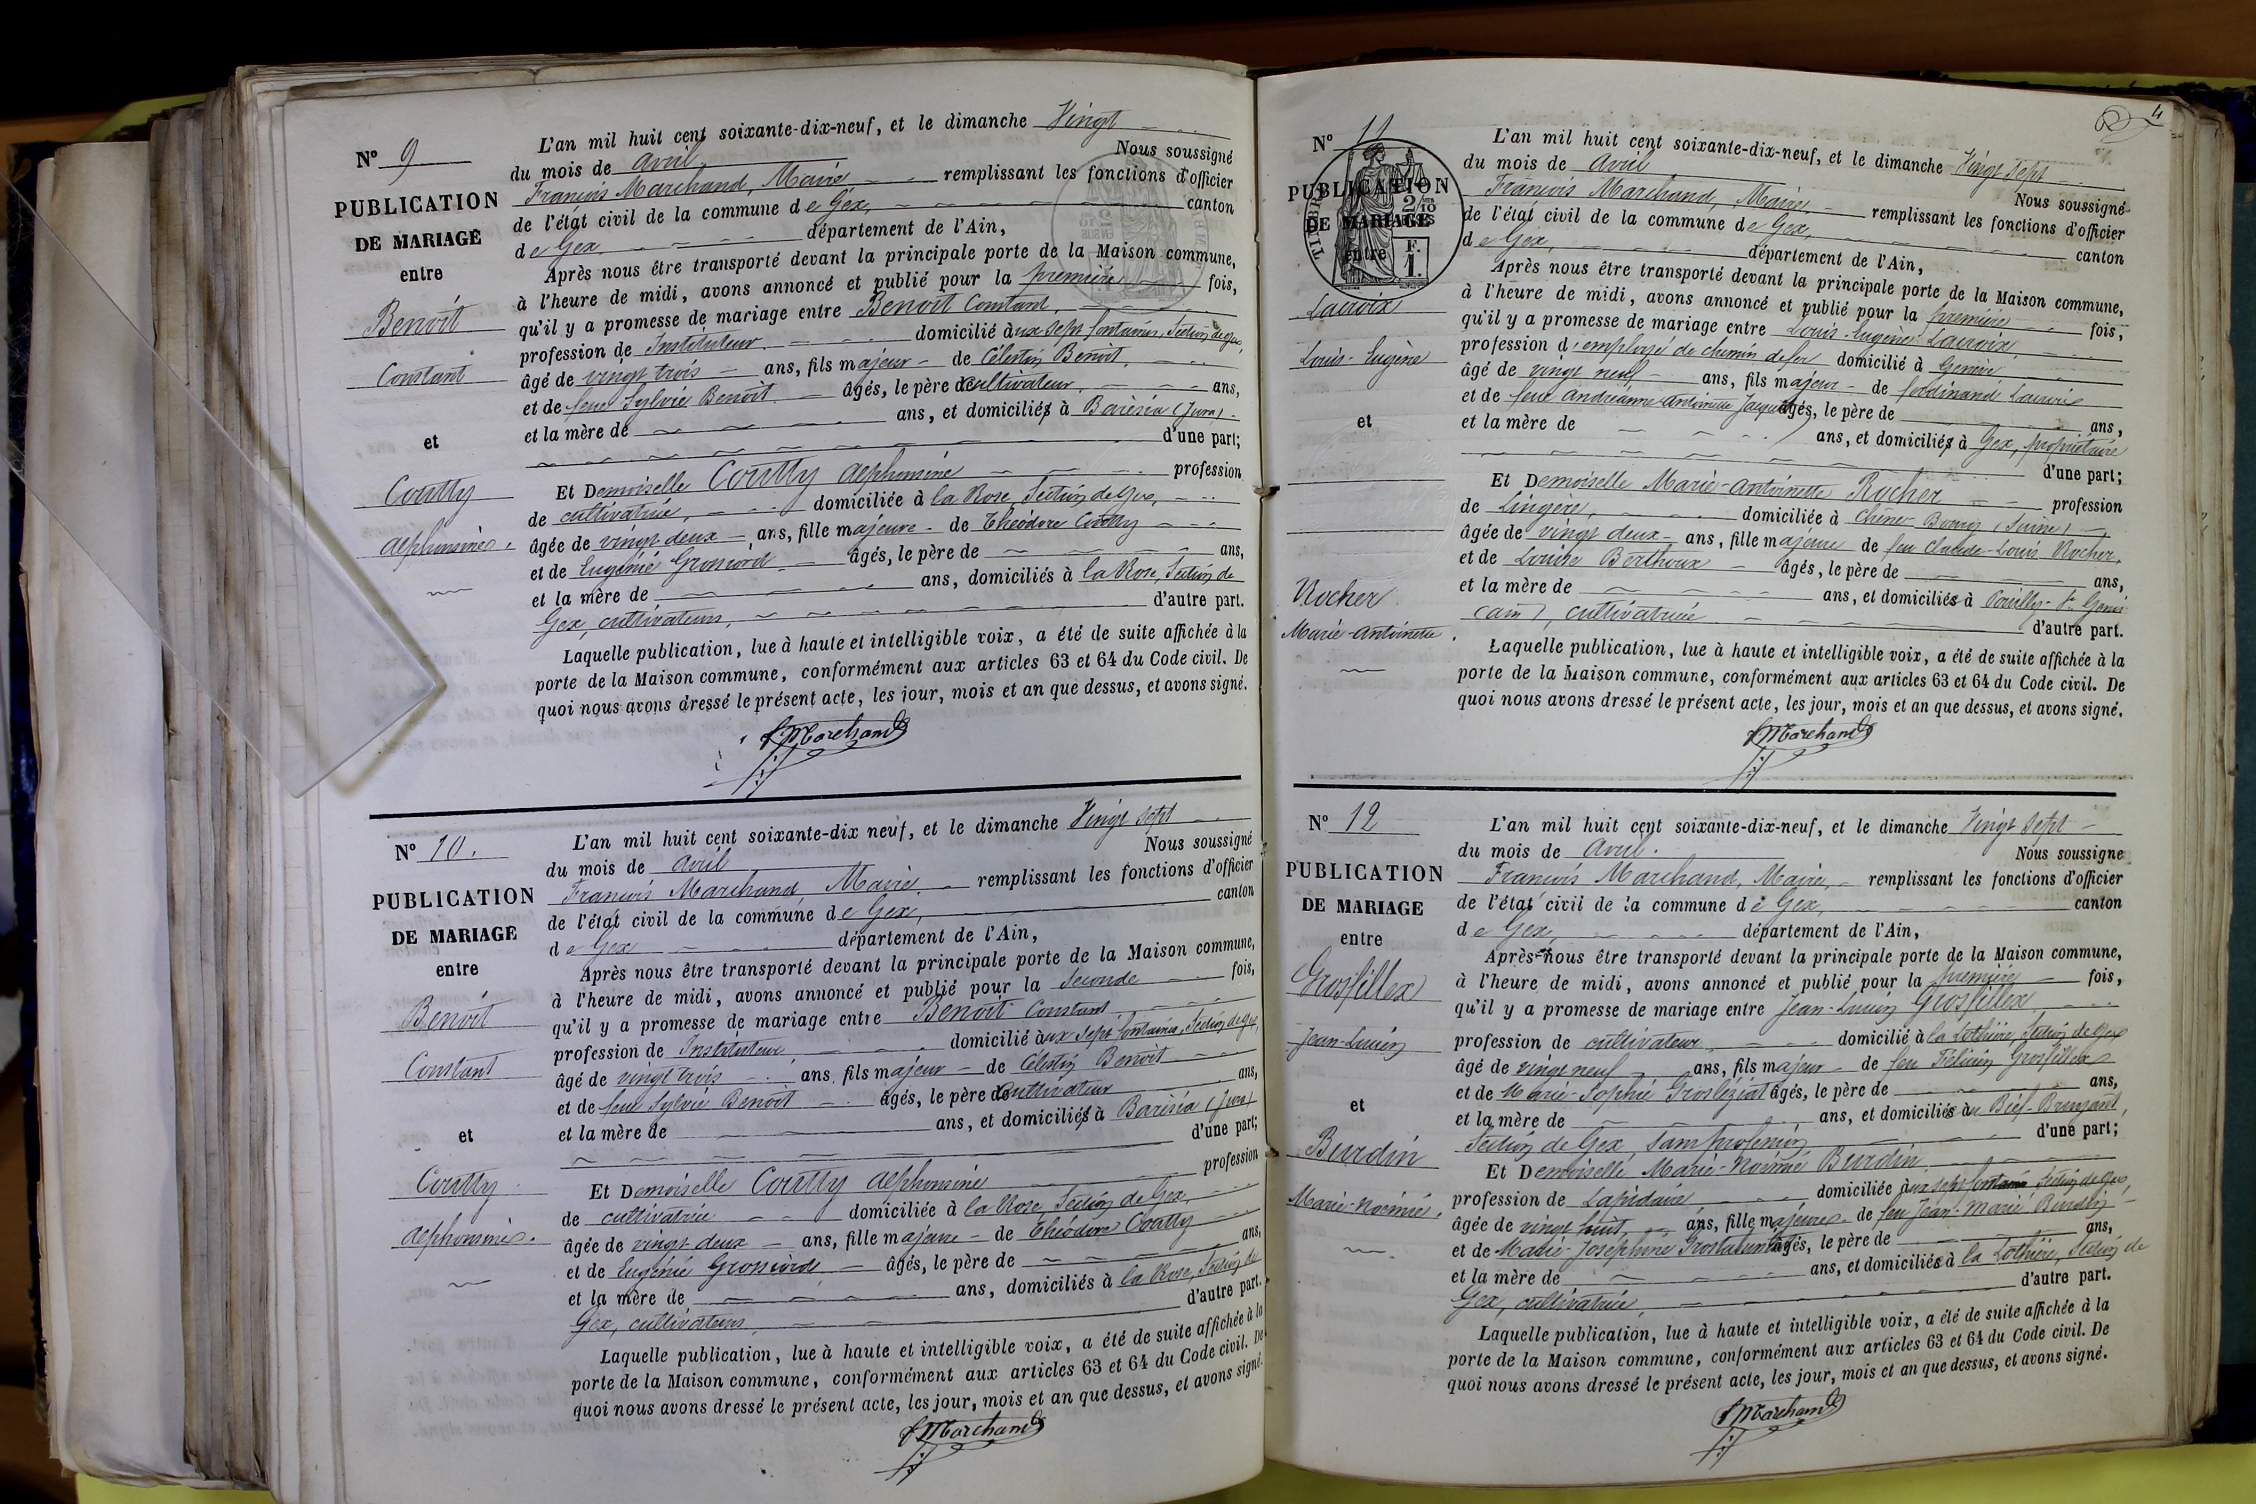 N° 9
PUBLICATION
DE MARIAGE
entre
Benoît
Constant
et
Coutty
Alphonsine.
L'an mil huit cent soixante-dix-neuf, et le dimanche Vingt
du mois de avril Nous soussigné
François Marchand, Maire remplissant les fonctions d'officier
de l'état civil de la commune de Gex, canton
de Gex département de l'Ain,
Après nous être transporté devant la principale porte de la Maison commune,
à l'heure de midi, avons annoncé et publié pour la première fois,
qu'il y a promesse de mariage entre Benoît Constant,
profession de Instituteur domicilié aux sept fontaines, Section de Gex,
âgé de vingt trois ans, fils majeur de Célestin Benoît,
et de feue Sylvie Benoît âgés, le père de cultivateur, ans,
et la mère de ans, et domiciliés à Barésia (Jura)
d'une part;
Et Demoiselle Coutty Alphonsine profession
de cultivatrice, domiciliée à la Rose, Section de Gex,
âgée de vingt deux ans, fille majeure de Théodore Coutty
et de Eugénie Grossiord âgés, le père de ans,
et la mère de ans, domiciliés à la Rose, Section de
Gex, cultivateurs, d'autre part.
Laquelle publication, lue à haute et intelligible voix, a été de suite affichée à la
porte de la Maison commune, conformément aux articles 63 et 64 du Code civil. De
quoi nous avons dressé le présent acte, les jour, mois et an que dessus, et avons signé.
f Marchand
N° 10.
PUBLICATION
DE MARIAGE
entre
Benoît
Constant
et
Coutty
Alphonsine.
L'an mil huit cent soixante-dix neuf, et le dimanche Vingt sept
du mois de avril Nous soussigné
François Marchand, Maire remplissant les fonctions d'officier
de l'état civil de la commune de Gex, canton
de Gex département de l'Ain,
Après nous être transporté devant la principale porte de la Maison commune,
à l'heure de midi, avons annoncé et publié pour la Seconde fois,
qu'il y a promesse de mariage entre Benoît Constant
profession de Instituteur, domicilié aux sept fontaines, Section de Gex,
âgé de vingt trois ans, fils majeur de Célestin Benoît
et de feue Sylvie Benoît âgés, le père de cultivateur ans,
et la mère de ans, et domiciliés à Barésia (Jura)
d'une part;
Et Demoiselle Coutty Alphonsine profession
de cultivatrice domiciliée à la Rose, Section de Gex,
âgée de vingt deux ans, fille majeure de Théodore Coutty
et de Eugénie Grossiord âgés, le père de ans,
et la mère de ans, domiciliés à la Rose, Section de
Gex, cultivateurs, d'autre part.
Laquelle publication, lue à haute et intelligible voix, a été de suite affichée à la
porte de la Maison commune, conformément aux articles 63 et 64 du Code civil. De
quoi nous avons dressé le présent acte, les jour, mois et an que dessus, et avons signé.
f Marchand
4
N° 11
PUBLICATION
DE MARIAGE
entre
Lacroix
Louis-Eugène
et
Rocher
Marie-Antoinette.
L'an mil huit cent soixante-dix-neuf, et le dimanche Vingt sept
du mois de avril Nous soussigné
François Marchand, Maire, remplissant les fonctions d'officier
de l'état civil de la commune de Gex, canton
de Gex, département de l'Ain,
Après nous être transporté devant la principale porte de la Maison commune,
à l'heure de midi, avons annoncé et publié pour la première fois,
qu'il y a promesse de mariage entre Louis-Eugène Lacroix,
profession d'employé de chemin de fer domicilié à Genève
âgé de vingt neuf ans, fils majeur de ferdinand Lacroix
et de feue Andréanne-Antoinette âgés, le père de ans,
et la mère de ans, et domiciliés à Gex, propriétaire
d'une part;
Et Demoiselle Marie-Antoinette Rocher profession
de Lingère, domiciliée à Chêne-Bourg (Suisse)
âgée de vingt deux ans, fille majeure de feu Claude-Louis Rocher,
et de Louise Berthoux âgés, le père de ans,
et la mère de ans, et domiciliés à Pouilly-St Genis
(Ain), cultivatrice d'autre part.
Laquelle publication, lue à haute et intelligible voix, a été de suite affichée à la
porte de la Maison commune, conformément aux articles 63 et 64 du Code civil. De
quoi nous avons dressé le présent acte, les jour, mois et an que dessus, et avons signé.
f Marchand
N° 12
PUBLICATION
DE MARIAGE
entre
Grosfillex
Jean-Lucien
et
Burdin
Marie-Noémie.
L'an mil huit cent soixante-dix-neuf, et le dimanche Vingt Sept
du mois de Avril. Nous soussigné
François Marchand, Maire, remplissant les fonctions d'officier
de l'état civil de la commune de Gex, canton
de Gex, département de l'Ain,
Après nous être transporté devant la principale porte de la Maison commune,
à l'heure de midi, avons annoncé et publié pour la première fois,
qu'il y a promesse de mariage entre Jean-Lucien Grosfillex
profession de cultivateur domicilié à la Sothière, Section de Gex
âgé de vingt neuf ans, fils majeur de feu Félicien Grosfillex
et de Marie-Sophie âgés, le père de ans,
et la mère de ans, et domiciliés au Bief-Brussant,
Section de Gex, sans profession d'une part;
Et Demoiselle Marie-Noémie Burdin
profession de Lapidaire domiciliée aux sept fontaines Section de Gex,
âgée de vingt huit ans, fille majeure de feu Jean-Marie Burdin
et de Marie-Joséphine âgés, le père de ans,
et la mère de ans, et domiciliés à la Sothière, Section de
Gex, cultivatrice, d'autre part.
Laquelle publication, lue à haute et intelligible voix, a été de suite affichée à la
porte de la Maison commune, conformément aux articles 63 et 64 du Code civil. De
quoi nous avons dressé le présent acte, les jour, mois et an que dessus, et avons signé.
f Marchand